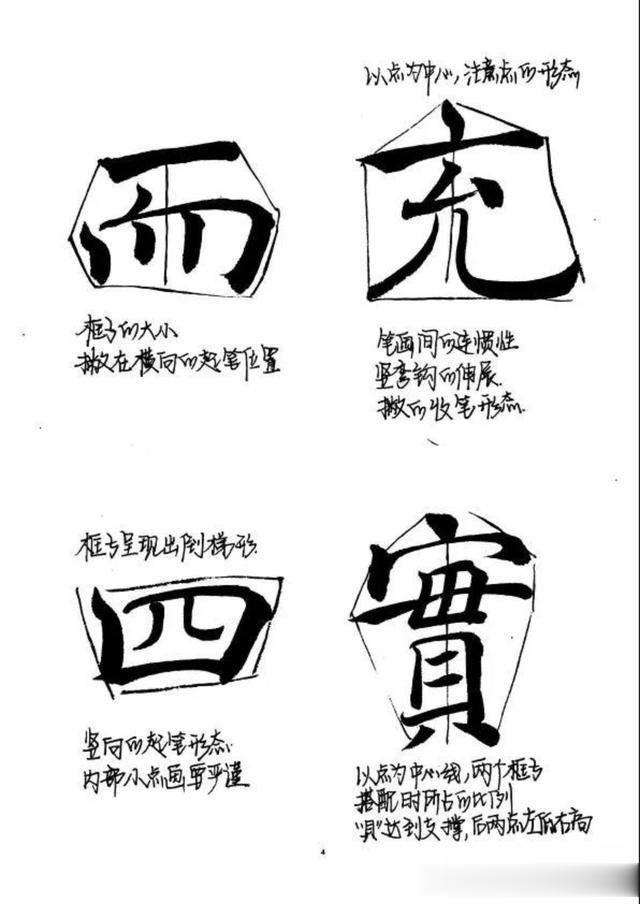 而
框与的大小
撇在横向的起笔位置
以点为中心,注意点的形态
充
笔画间的连惯性
竖弯钩的伸展.
撇的收笔形态.
框与呈现出倒梯形.
四
竖向的起笔形态.
内部小点画要严谨
實
以点为中心线,两个框与
搭配时所占的比例
"貝"达到支撑,后两点左低右高
4